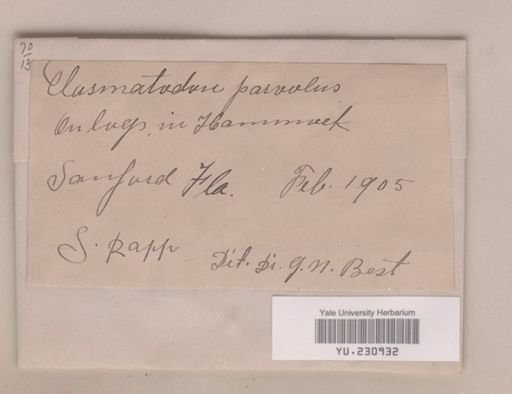 70
13
Clasmatodon parvulus
On logs, in Hammock
Sanford Fla. Feb. 1905
S. Rapp Det. Dr. G. N. Best
Yale University Herbarium
YU.230932